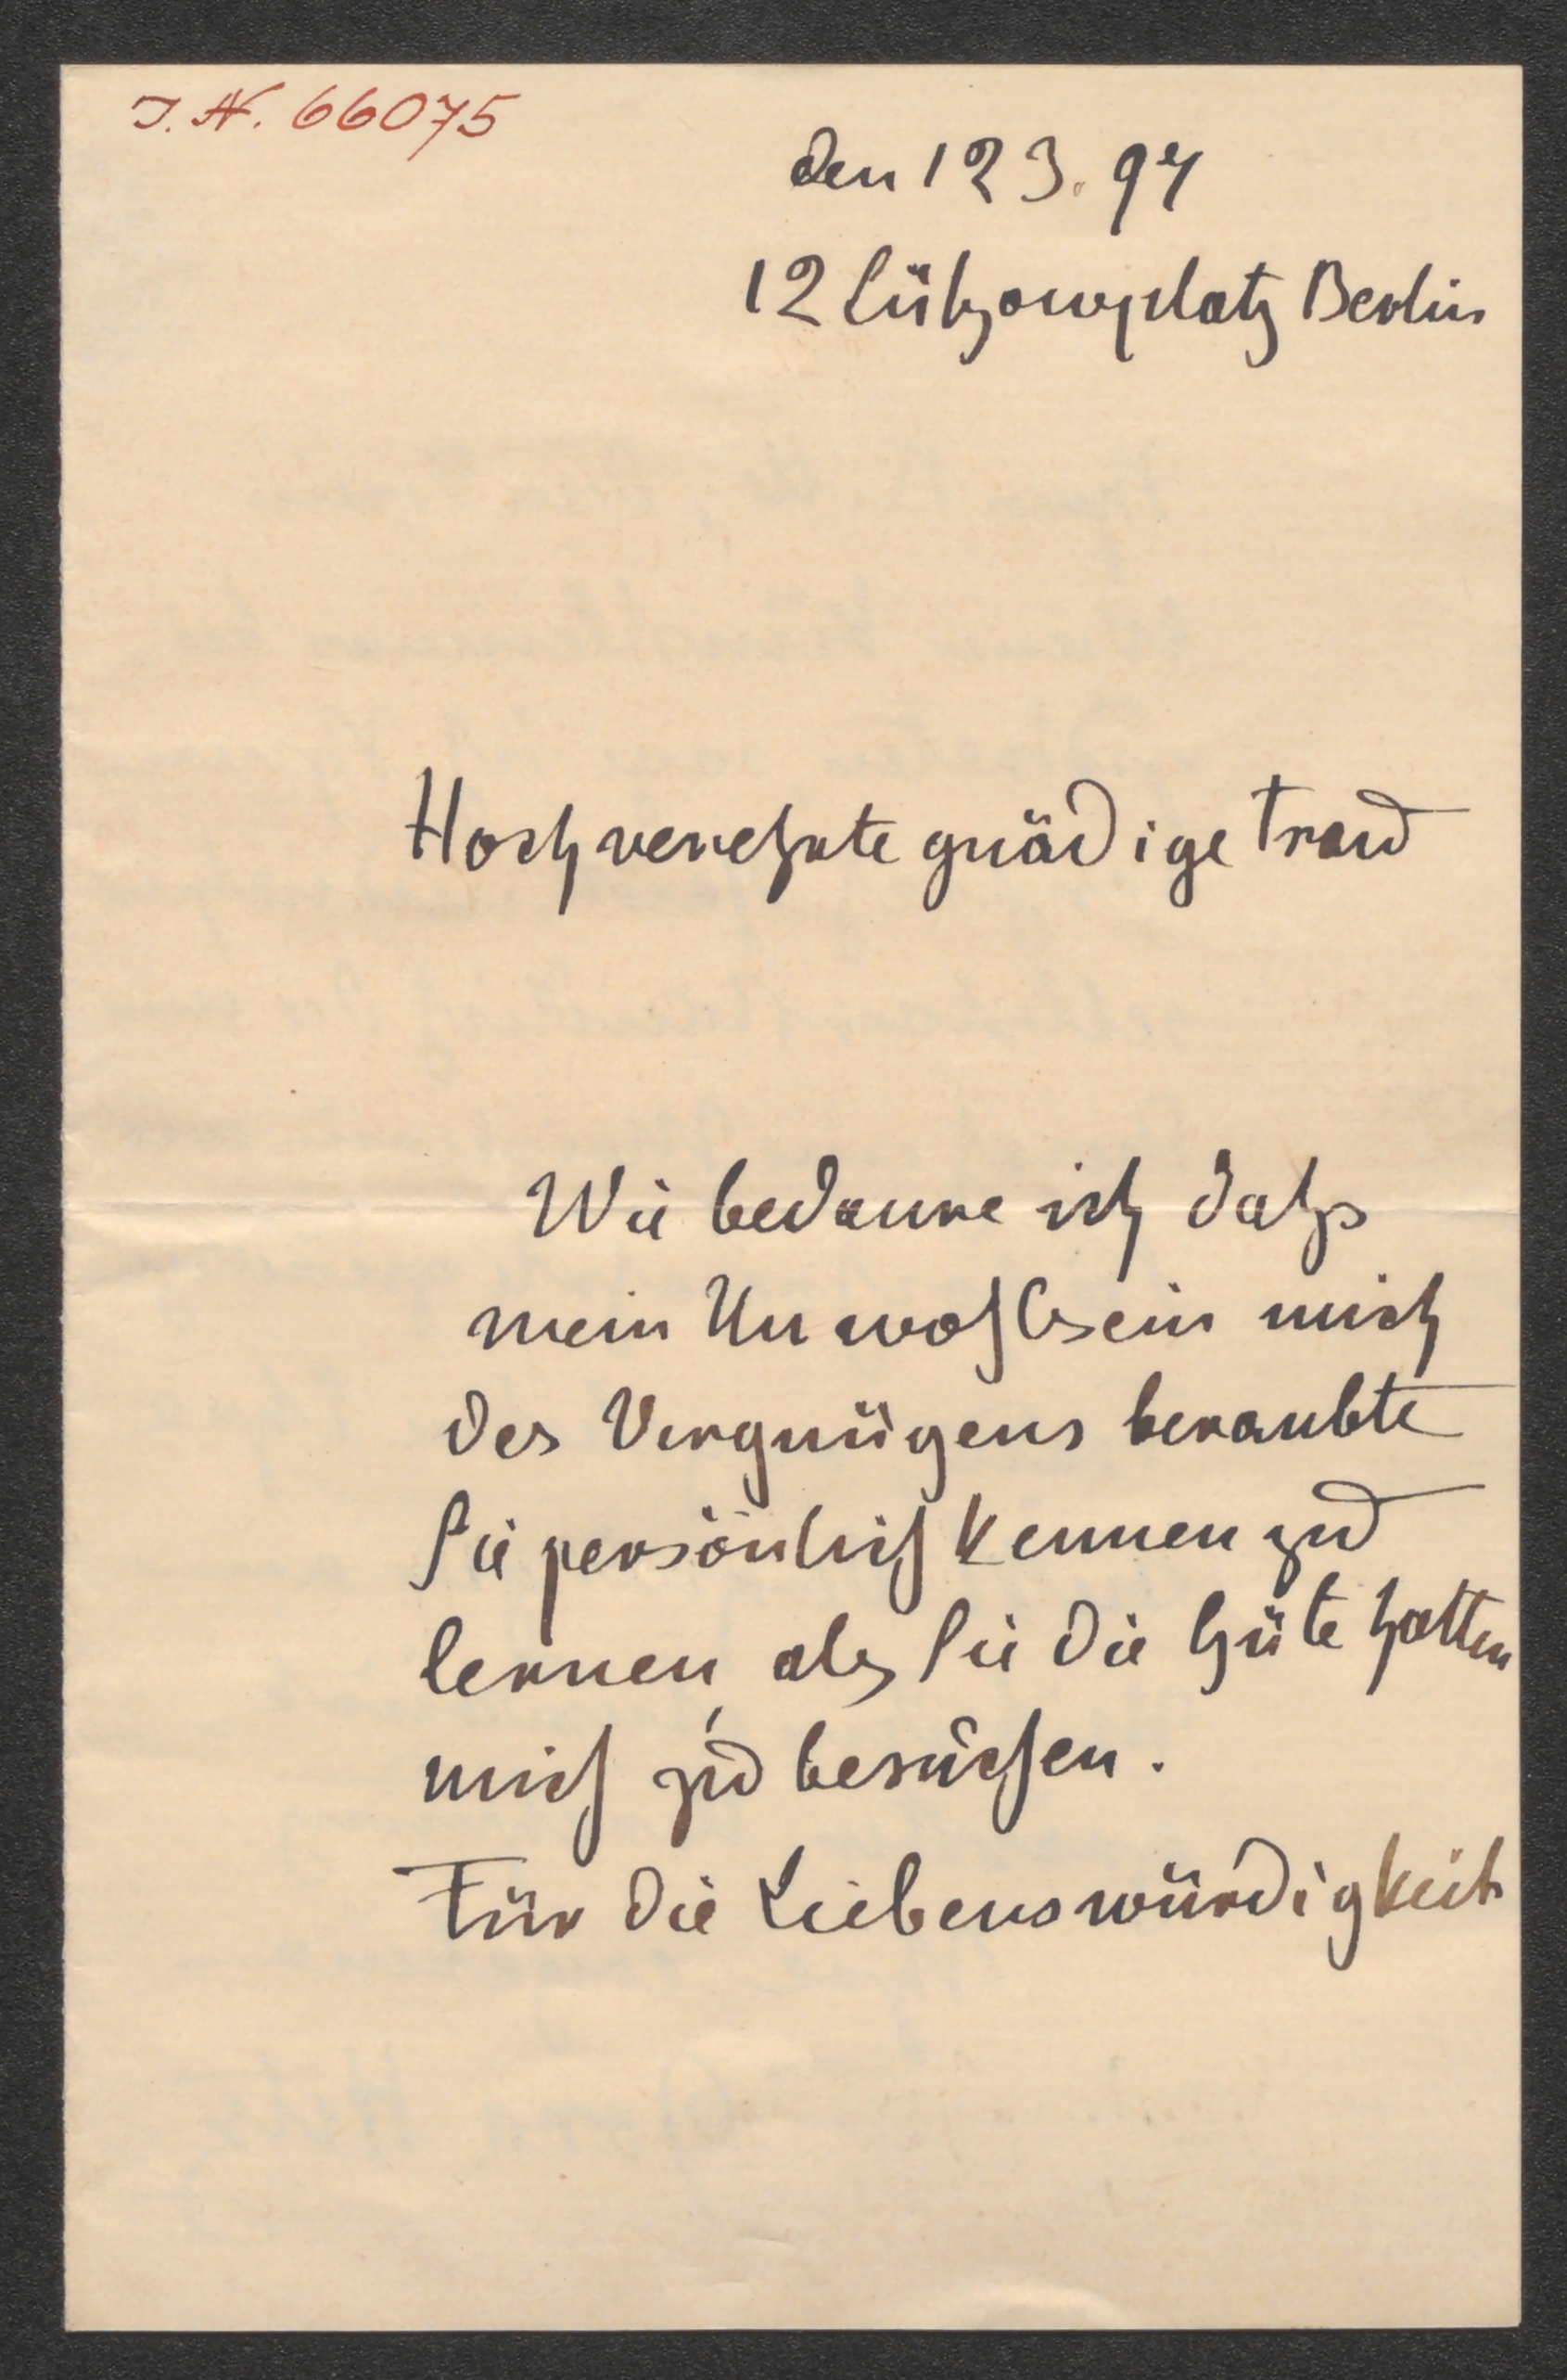 J. N. 66075
den 12 3. 97
12 Lützowplatz Berlin
Hochverehrte gnädige Frau
Wie bedaure ich dafs
mein Unwohlsein mich
des Vergnügens beraubte
Sie persönlich kennen zu
lernen, als Sie die Güte hatten
mich zu besuchen.
Für die Liebenswürdigkeit